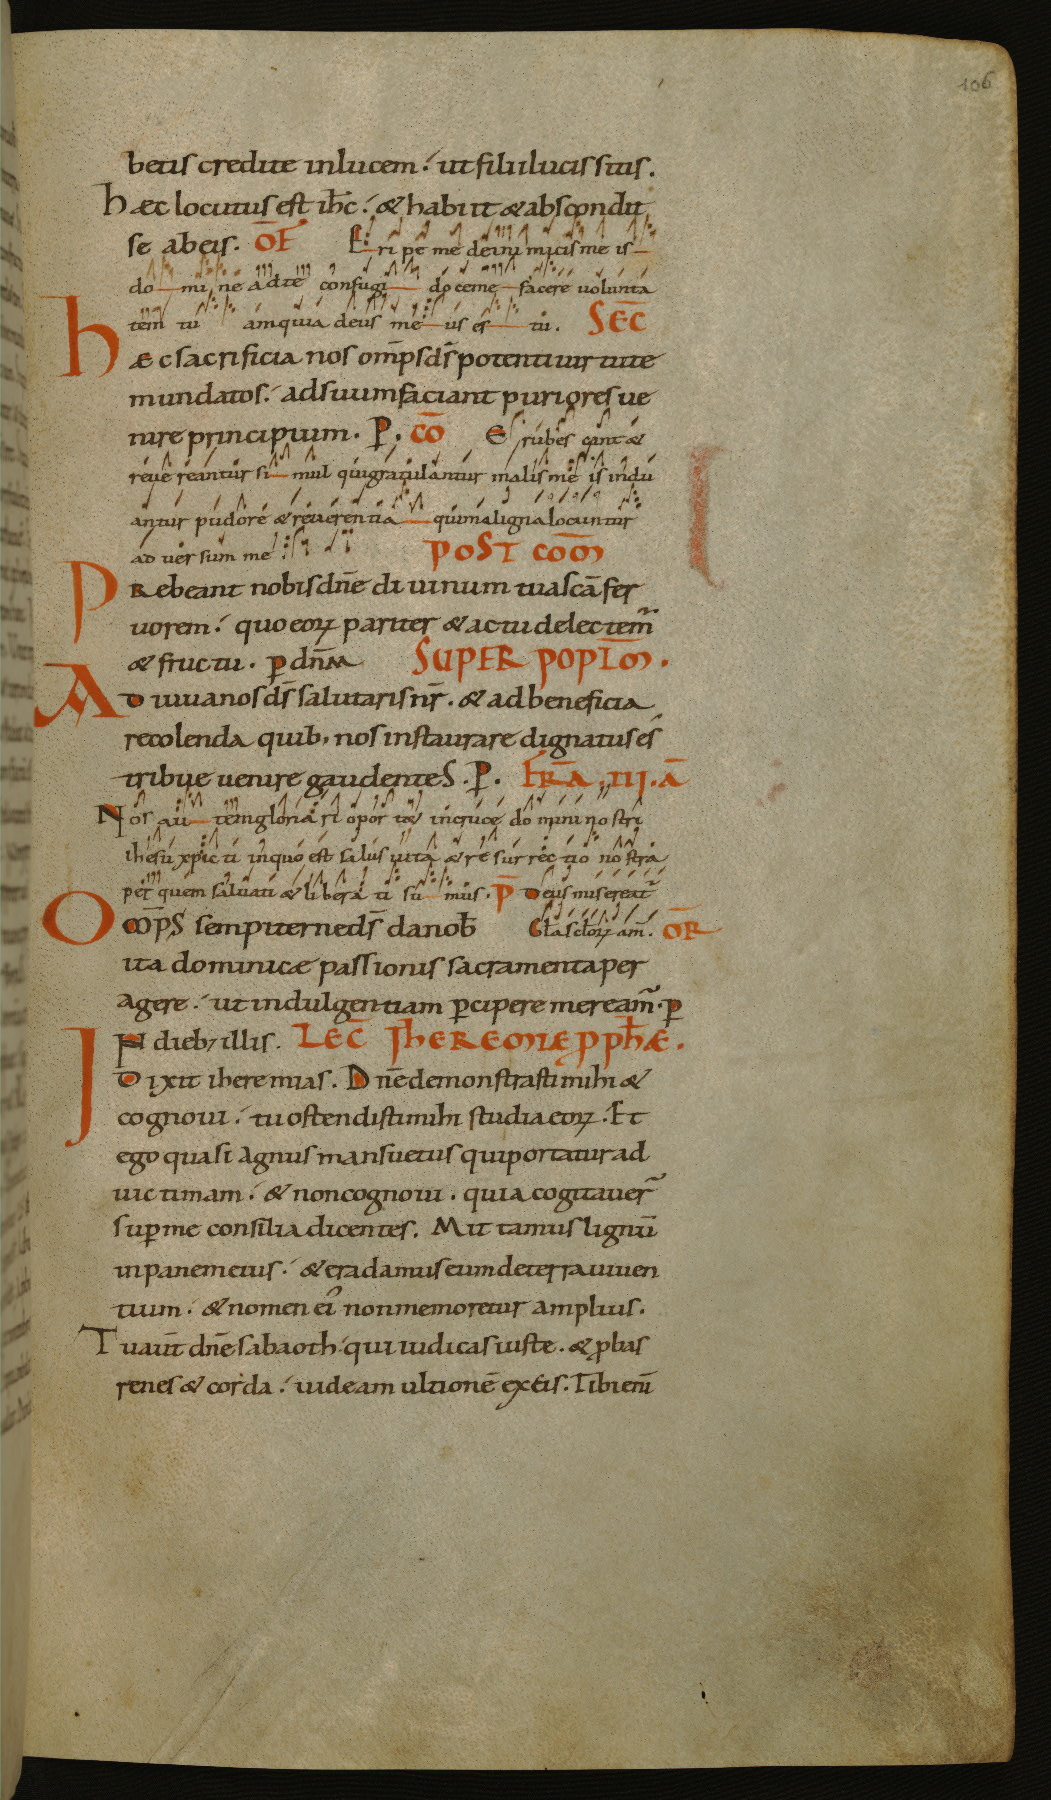 106
betis credite in lucem. ut filii lucis sitis.
Haec locutus est ih̅c. & habiit & abscondit
se ab eis. OF̅ Eripe me de inimicis me is
do mi ne ad te confugi doce me facere volunta
tem tu am quia deus me us es tu. SEC̅
Haec sacrificia nos om̅ps d̅s potenti uirtute
mundatos. ad suum faciant puriores ue
nire principium. P. CO̅ Erubescant &
reuereantur simul qui gratulantur malis me is indu
antur pudore & reuerentia qui maligna locuntur
aduersum me POST CO̅M
Prebeant nobis dn̅e diuinum tua sca̅ fer
uorem. quo eoꝝ pariter & actu delectem̅
& fructu. p dn̅m SUPER POPL̅M.
Adiuua nos d̅s salutaris nr̅. & ad beneficia
recolenda quib; nos instaurare dignatus es
tribue uenire gaudentes. P. FR̅A. III. A̅
Nos autem gloriari oport& in cruce domini nostri
ihesu xpicti in quo est salus uita & resurrectio nostra
per quem saluati & liberati sumus. P̅ Deus misereat̅
Om̅ps sempiterne d̅s da nob̅ Glascloꝝ am̅. OR̅
ita dominicae passionis sacramenta per
agere. ut indulgentiam p̲cipere meream̅. p
In dieb; illis. LEC̅ IHEREMIAE PPH̅AE.
Dixit iheremias. Dn̅e demonstrasti mihi &
cognoui. tu ostendisti mihi studia eoꝝ. Et
ego quasi agnus mansuetus qui portatur ad
uictimam. & non cognoui. quia cogitauer̅
sup me consilia dicentes. Mittamus lignu̅
in panem eius. & eradamus eum de terra uiuen
tium. & nomen ei' non memoretur amplius.
Tu aut̅ dn̅e sabaoth qui iudicas iuste. & p̲bas
renes & corda. uideam ultione̅ ex eis. Tibi eni̅